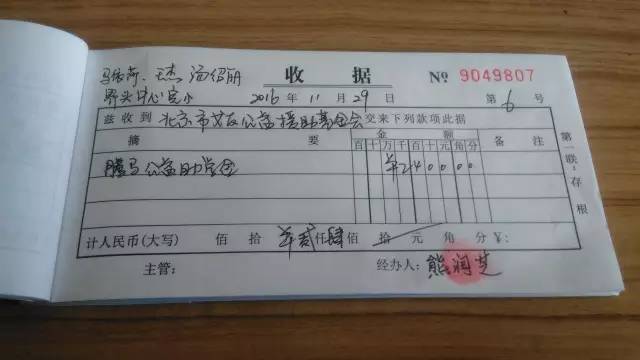 王杰 汤绍册 收 据 № 9049807
界头中心完小 2016 年 11 月 29 日 第 6 号
兹收到 北京市 公益援助基金会 交来下列款项此据
摘 要 金 额 备 注
百 十 万 千 百 十 元 角 分
腾马公益助学金 ¥ 2 4 0 0 0 0
计人民币(大写) 佰 拾 ¥贰仟肆佰 拾 元 角 分 ¥:
主管: 经办人: 熊润芝
第一联:存根